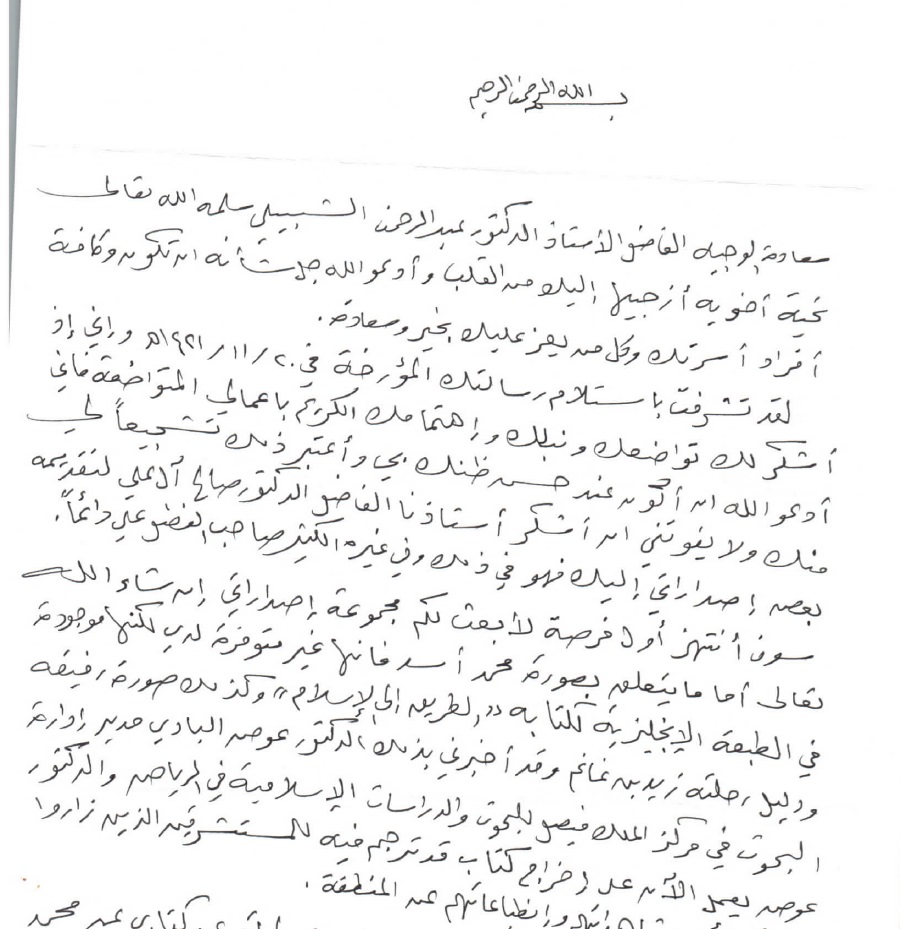 بسم الله الرحمن الرحيم
سعادة الوجيه الفاضل الأستاذ الدكتور عبدالرحمن الشبيلي سلمه الله تعالى
تحية أخوية أزجيها إليك من القلب وأدعو الله جل شأنه ان تكون وكافة
أفراد أسرتك وكل من يعز عليك بخير وسعادة.
لقد تشرفت باستلام رسالتك المؤرخة في ٢٠/١١/١٤٢١هـ وإني إذ
أشكر لك تواضعك ونبلك واهتمامك الكريم باعمالي المتواضعة فإني
أدعو الله ان أكون عند حسن ظنك بي وأعتبر ذلك تشجيعاً لي
منك ولا يفوتني ان أشكر أستاذنا الفاضل الدكتور صالح آل علي لتقديمه
بعض إصداراتي إليك فهو في ذلك وفي غيره الكثير صاحب الفضل علي دائماً.
سوف أنتهز أول فرصة لأبعث لكم مجموعة إصداراتي إن شاء الله
تعالى أما ما يتعلق بصورة محمد أسد فانها غير متوفرة لدي لكنها موجودة
في الطبعة الإنجليزية لكتابه «الطريق إلى الإسلام» وكذلك صورة رفيقه
ودليل رحلته زيد بن غانم وقد أخبرني بذلك الدكتور عوض البادي مدير إدارة
البحوث في مركز الملك فيصل للبحوث والدراسات الإسلامية في الرياض والدكتور
عوض يعمل الآن على إخراج كتاب قد ترجم فيه للمستشرقين الذين زاروا
وانطباعاتهم عن المنطقة.
عن كتابي عن محمد